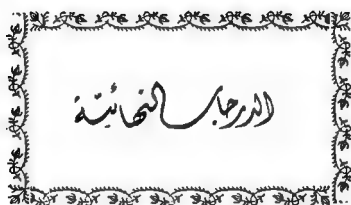 الدرجات النهائيّة